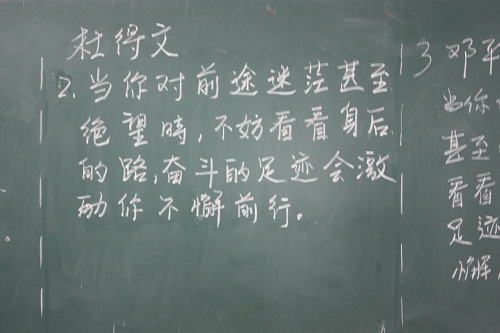 杜得文
2.当你对前途迷茫甚至
绝望時,不妨看看身后
的路,奋斗的足迹会激
励你不懈前行。
3 邓平
当你
甚至
看看
足迹
懈